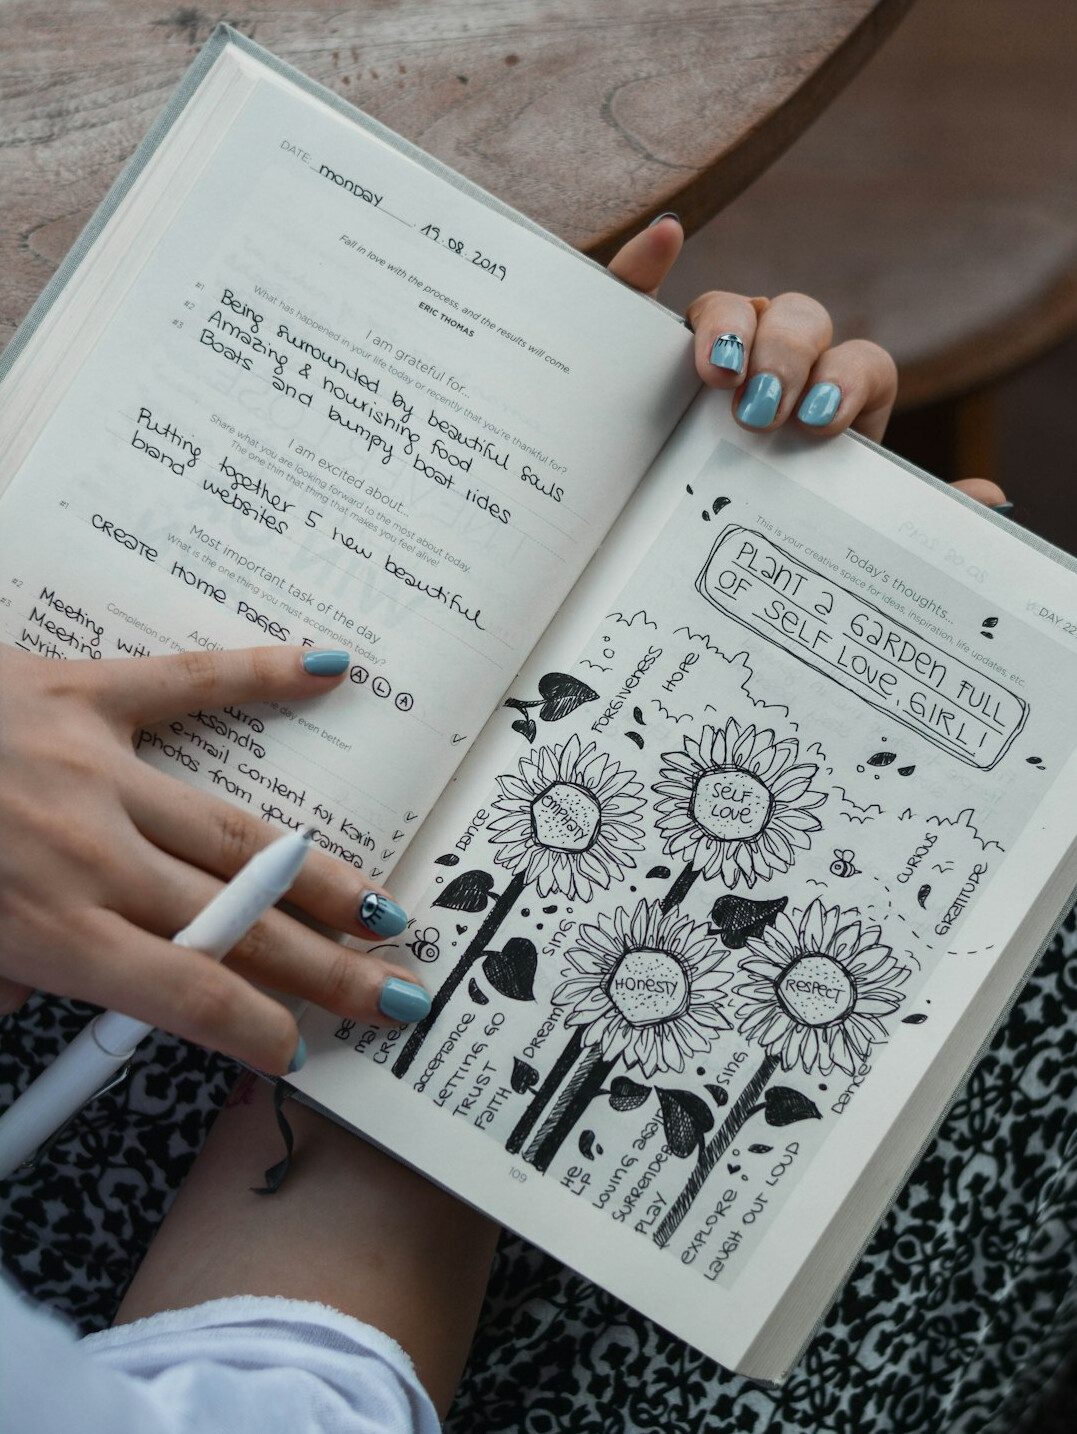 DATE: monday 19.08.2019
Fall in love with the process, and the results will come.
ERIC THOMAS
I am grateful for...
What has happened in your life today or recently that you're thankful for?
#1 Being surrounded by beautiful souls
#2 Amazing & nourishing food
#3 Boats and bumpy boat rides
I am excited about...
Share what you are looking forward to the most about today.
The one thin that thing that makes you feel alive!
Putting together 5 new beautiful
brand websites
Most important task of the day
What is the one thing you must accomplish today?
#1 CREATE HOME PAGES F
A L A
Completion of the
e day even better!
#2 Meeting with
#3 Meeting
e-mail content for Karin
photos from your camera
Today's thoughts...
This is your creative space for ideas, inspiration, life updates, etc.
DAY 22
PLANT a GARDEN FULL
OF SELF LOVE, GIRL!
FORGIVENESS
HOPE
EMPHATY
SELF
LOVE
DANCE
CURIOUS
GRATITUDE
SING
HONESTY
RESPECT
acceptance
LETTING GO
TRUST
FAITH
DREAM
SING
DANCE
HE
LP
LOVING again
SURRENDER
PLAY
EXPLORE
LAUGH OUT LOUD
109